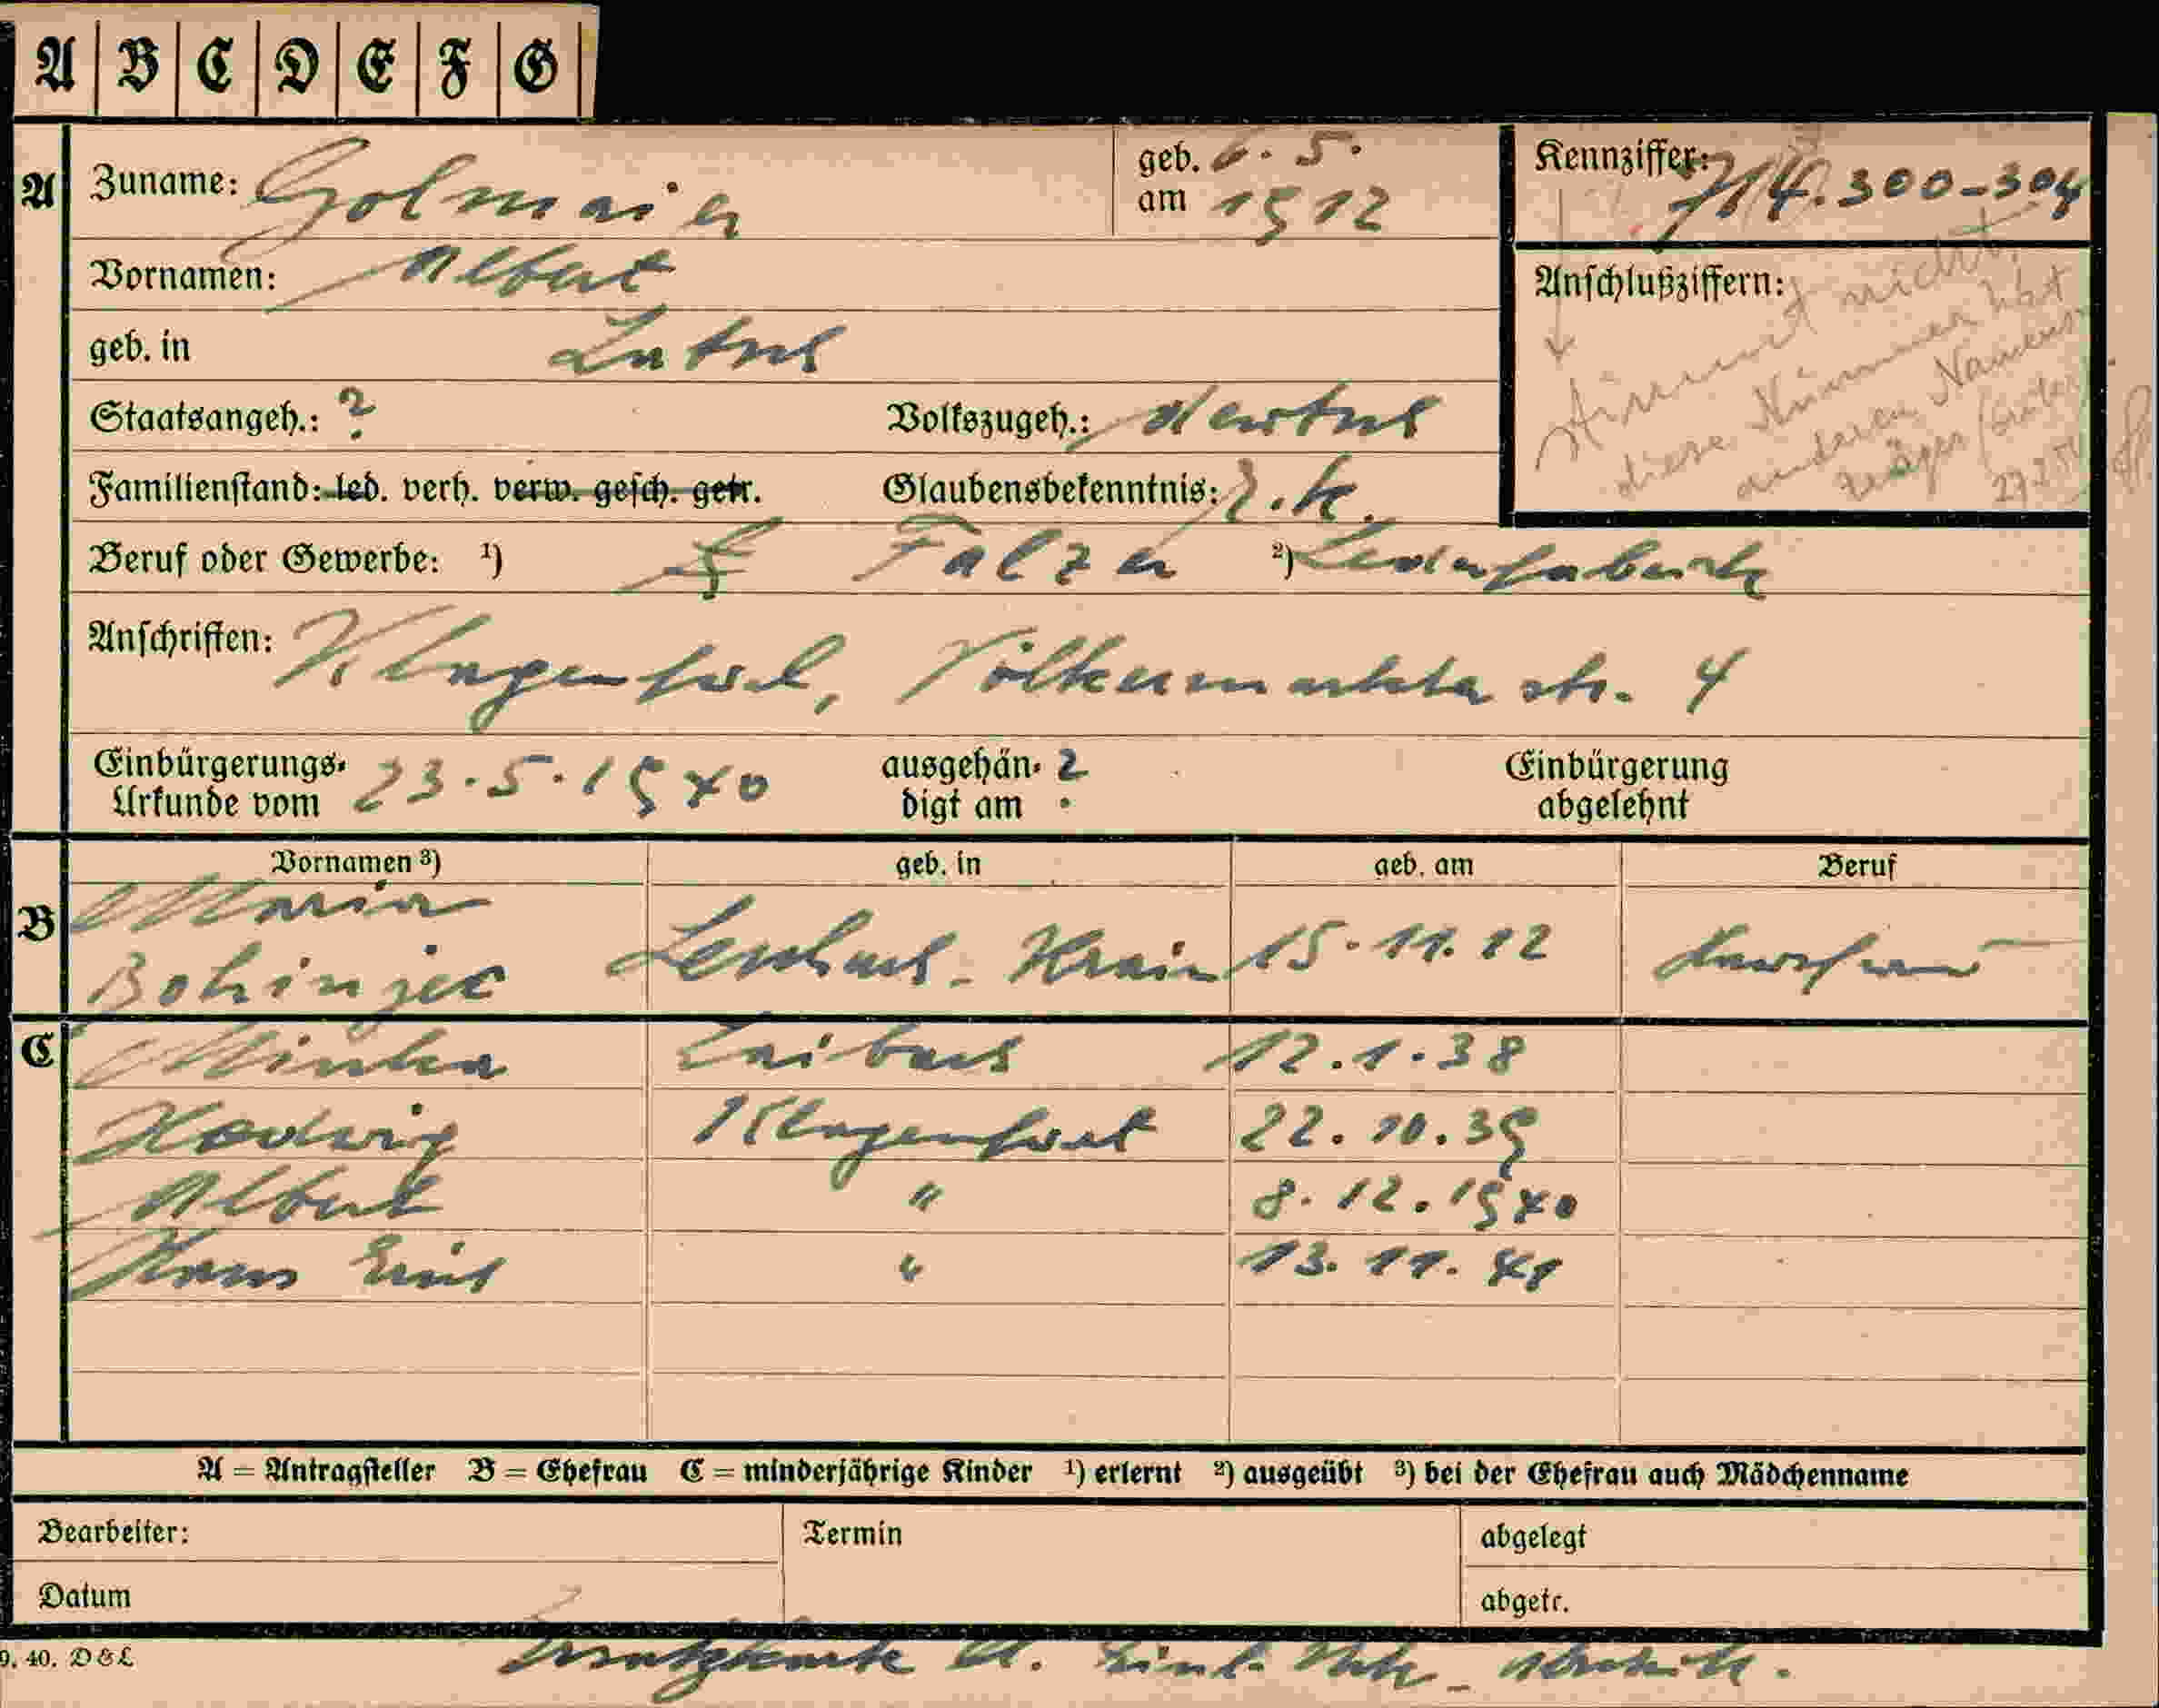 A B C D E F G
A Zuname: Golmaier geb. am 6. 5. 1912 Kennziffer: 714.300-304
Vornamen: Albert Anschlußziffern:
geb. in
Staatsangeh.: ? Volkszugeh.:
Familienstand: led. verh. verw. gesch. getr. Glaubensbekenntnis: r.k.
stimmt nicht
diese Nummer hat
anderen Namens
träger
Beruf oder Gewerbe: 1) Falzer 2) Lederfabrik
Anschriften: Klagenfurt, Völkermarkter str. 4
Einbürgerungs-Urkunde vom 23.5.1940 ausgehändigt am ? Einbürgerung abgelehnt
Vornamen 3) geb. in geb. am Beruf
B Maria
Bohinjec Krain 15.11.12 Hausfrau
C Minka Laibach 12.1.38
Hedwig Klagenfurt 22.10.39
Albert " 8.12.1940
Hans Erich " 13.11.41
A = Antragsteller B = Ehefrau C = minderjährige Kinder 1) erlernt 2) ausgeübt 3) bei der Ehefrau auch Mädchenname
Bearbeiter: Termin abgelegt
Datum abgetr.
9. 40. D&L
Ersatzkarte